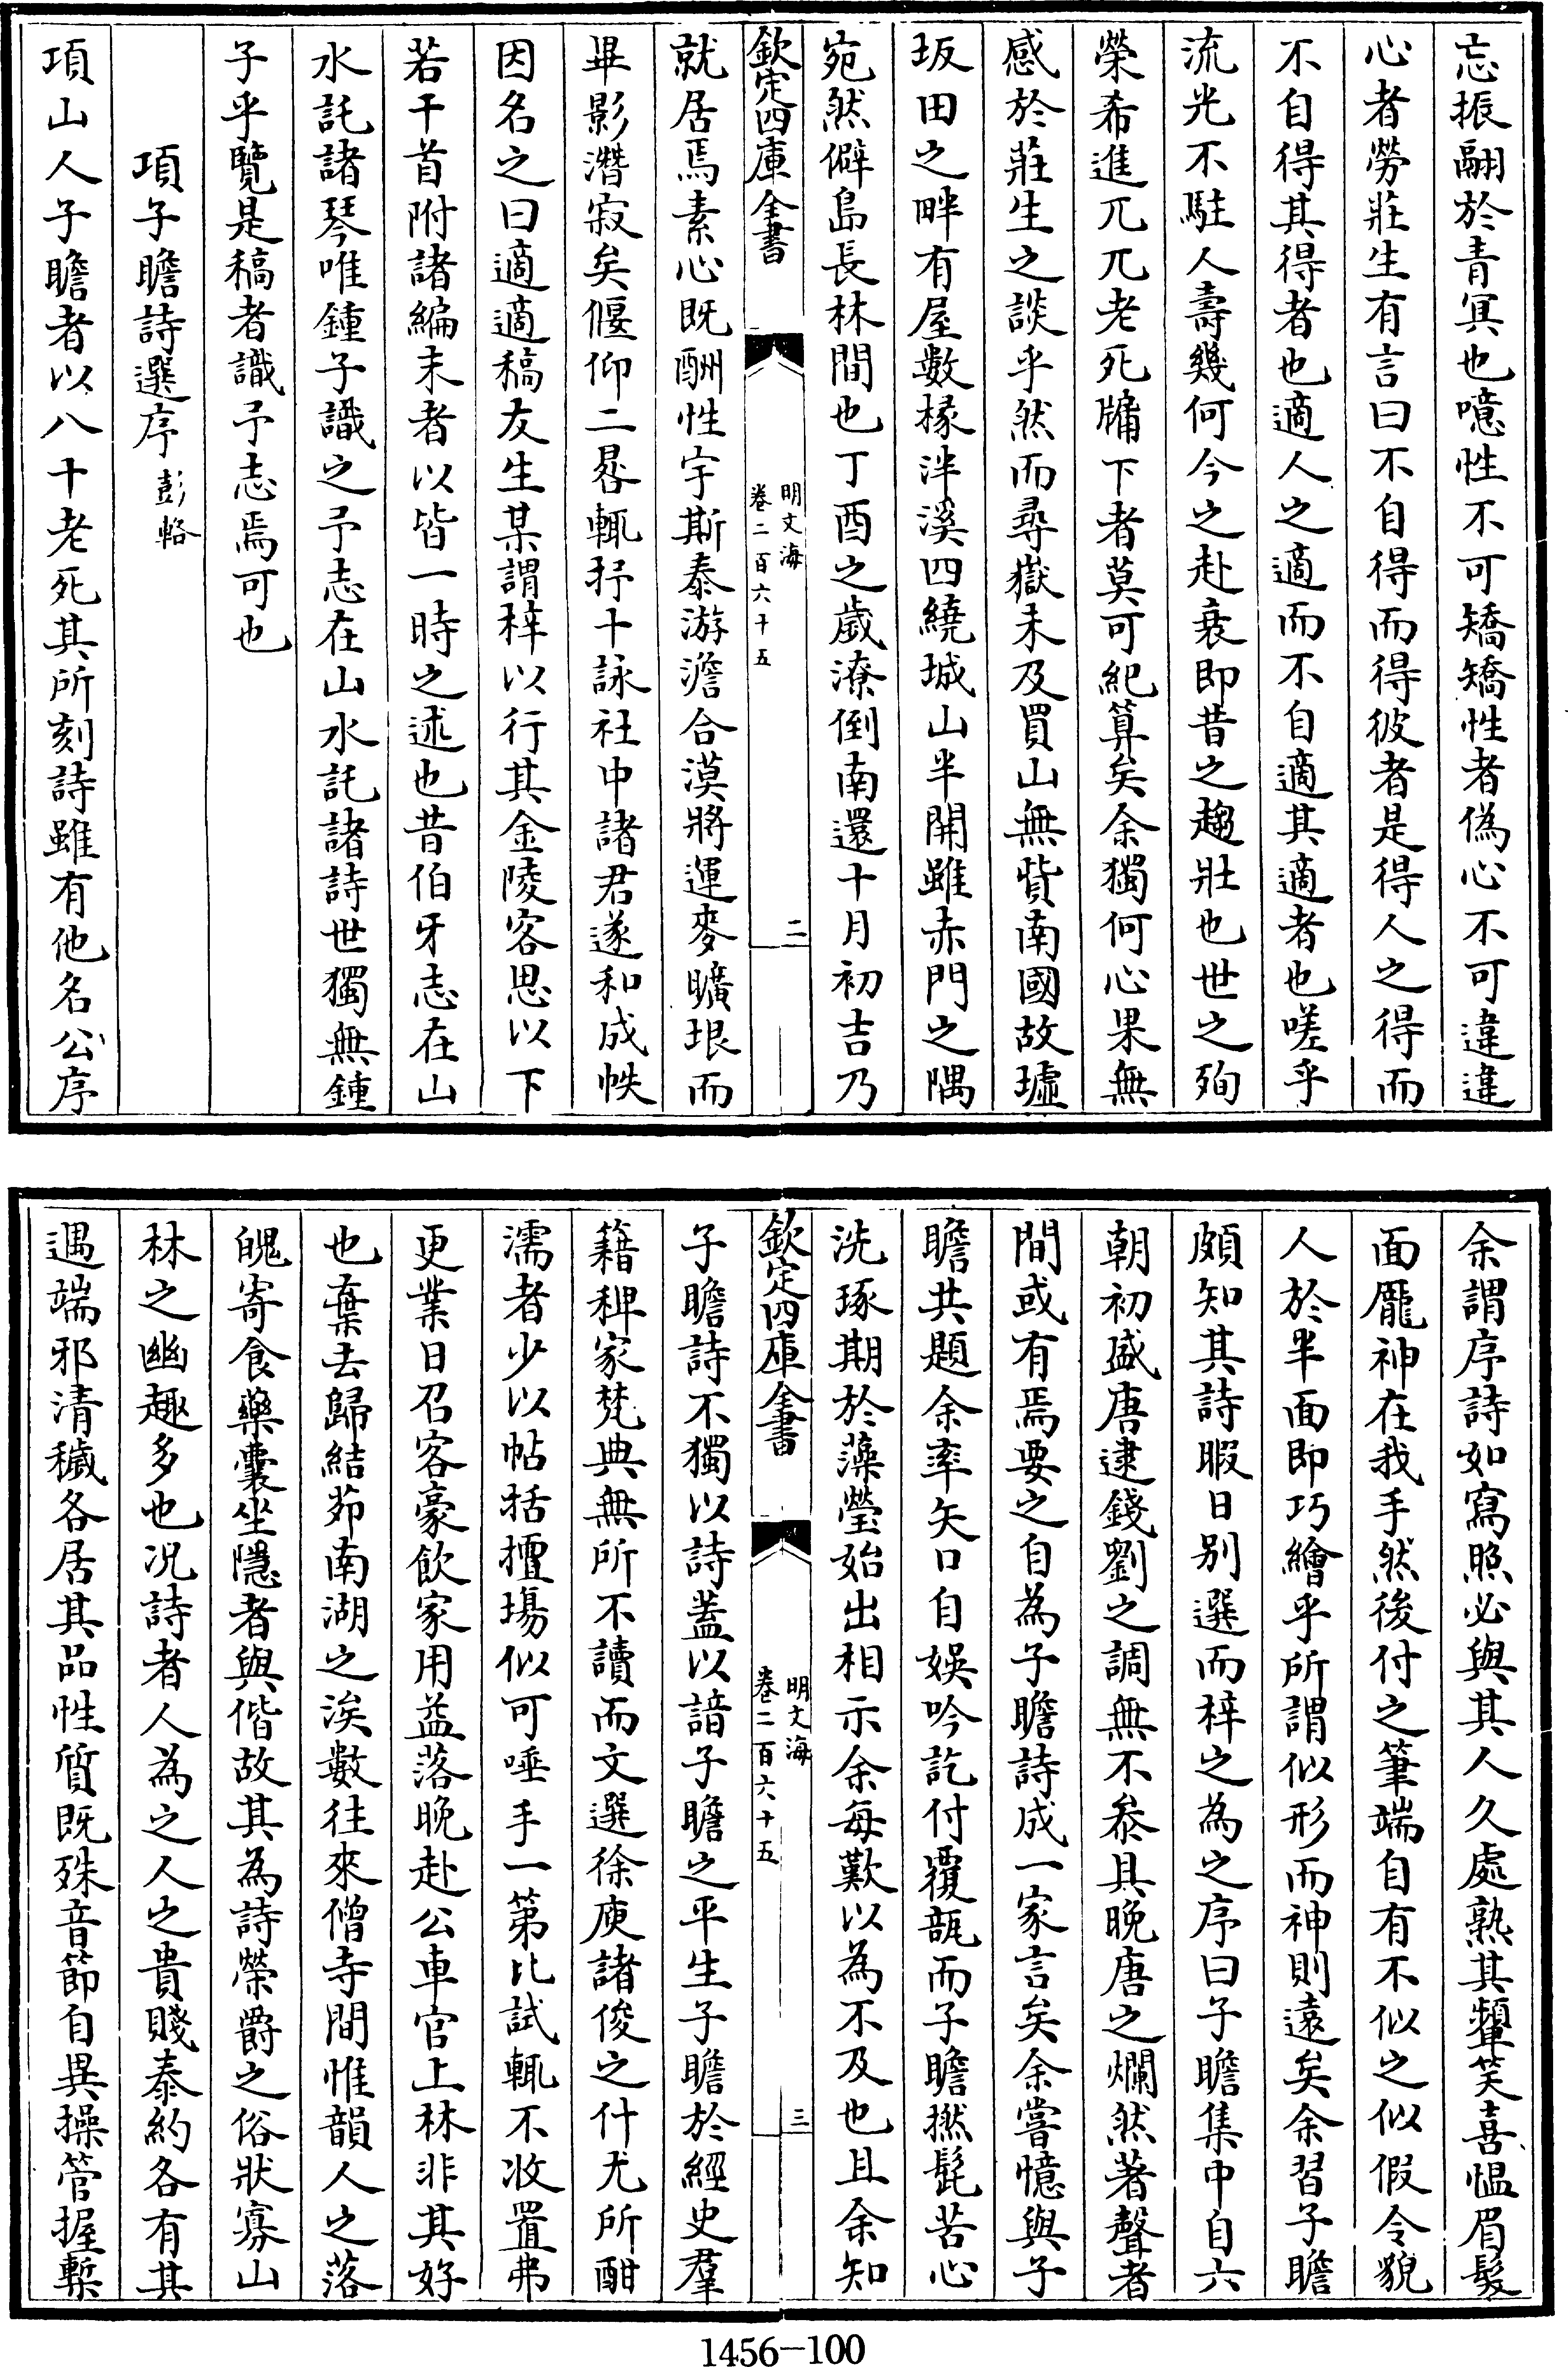 忘振翮於青冥也噫性不可矯矯性者偽心不可違違
心者勞莊生有言曰不自得而得彼者是得人之得而
不自得其得者也適人之適而不自適其適者也嗟乎
流光不駐人壽幾何今之赴衰即昔之趨壯也世之殉
榮希進兀兀老死牖下者莫可紀算矣余獨何心果無
感於莊生之談乎然而尋嶽未及買山無貲南國故墟
坂田之畔有屋數椽泮溪四繞城山半開雖赤門之隅
宛然僻島長林間也丁酉之歲潦倒南還十月初吉乃
欽定四庫全書
明文海
卷二百六十五
二
就居焉素心既酬性宇斯泰游澹合漠將運麥曠垠而
畢影潛寂矣偃仰二晷輒抒十詠社中諸君遂和成帙
因名之曰適適稿友生某謂梓以行其金陵客思以下
若干首附諸編末者以皆一時之述也昔伯牙志在山
水託諸琴唯鍾子識之予志在山水託諸詩世獨無鍾
子乎覽是稿者識予志焉可也
項子瞻詩選序彭輅
項山人子瞻者以八十老死其所刻詩雖有他名公序
余謂序詩如寫照必與其人久處熟其顰笑喜慍眉髮
面龐神在我手然後付之筆端自有不似之似假令貌
人於半面即巧繪乎所謂似形而神則遠矣余習子瞻
頗知其詩暇日别選而梓之為之序曰子瞻集中自六
朝初盛唐逮錢劉之調無不叅具晚唐之爛然著聲者
間或有焉要之自為子瞻詩成一家言矣余嘗憶與子
瞻共題余率矢口自娛吟訖付覆瓿而子瞻撚髭苦心
洗琢期於藻瑩始出相示余每歎以為不及也且余知
欽定四庫全書
明文海
卷二百六十五
三
子瞻詩不獨以詩蓋以諳子瞻之平生子瞻於經史羣
籍稗家梵典無所不讀而文選徐庾諸俊之什尤所酣
濡者少以帖括擅場似可唾手一第比試輒不收罝弗
更業日召客豪飲家用益落晚赴公車官上林非其好
也棄去歸結茆南湖之涘數往來僧寺間惟韻人之落
魄寄食藥囊坐隱者與偕故其為詩榮爵之俗狀寡山
林之幽趣多也况詩者人為之人之貴賤泰約各有其
遇端邪清穢各居其品性質既殊音節自異操管握槧
1456-100